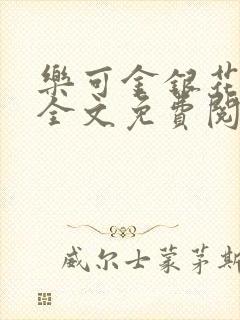 樂可金銀花
全文免費閱
威尔士蒙茅斯